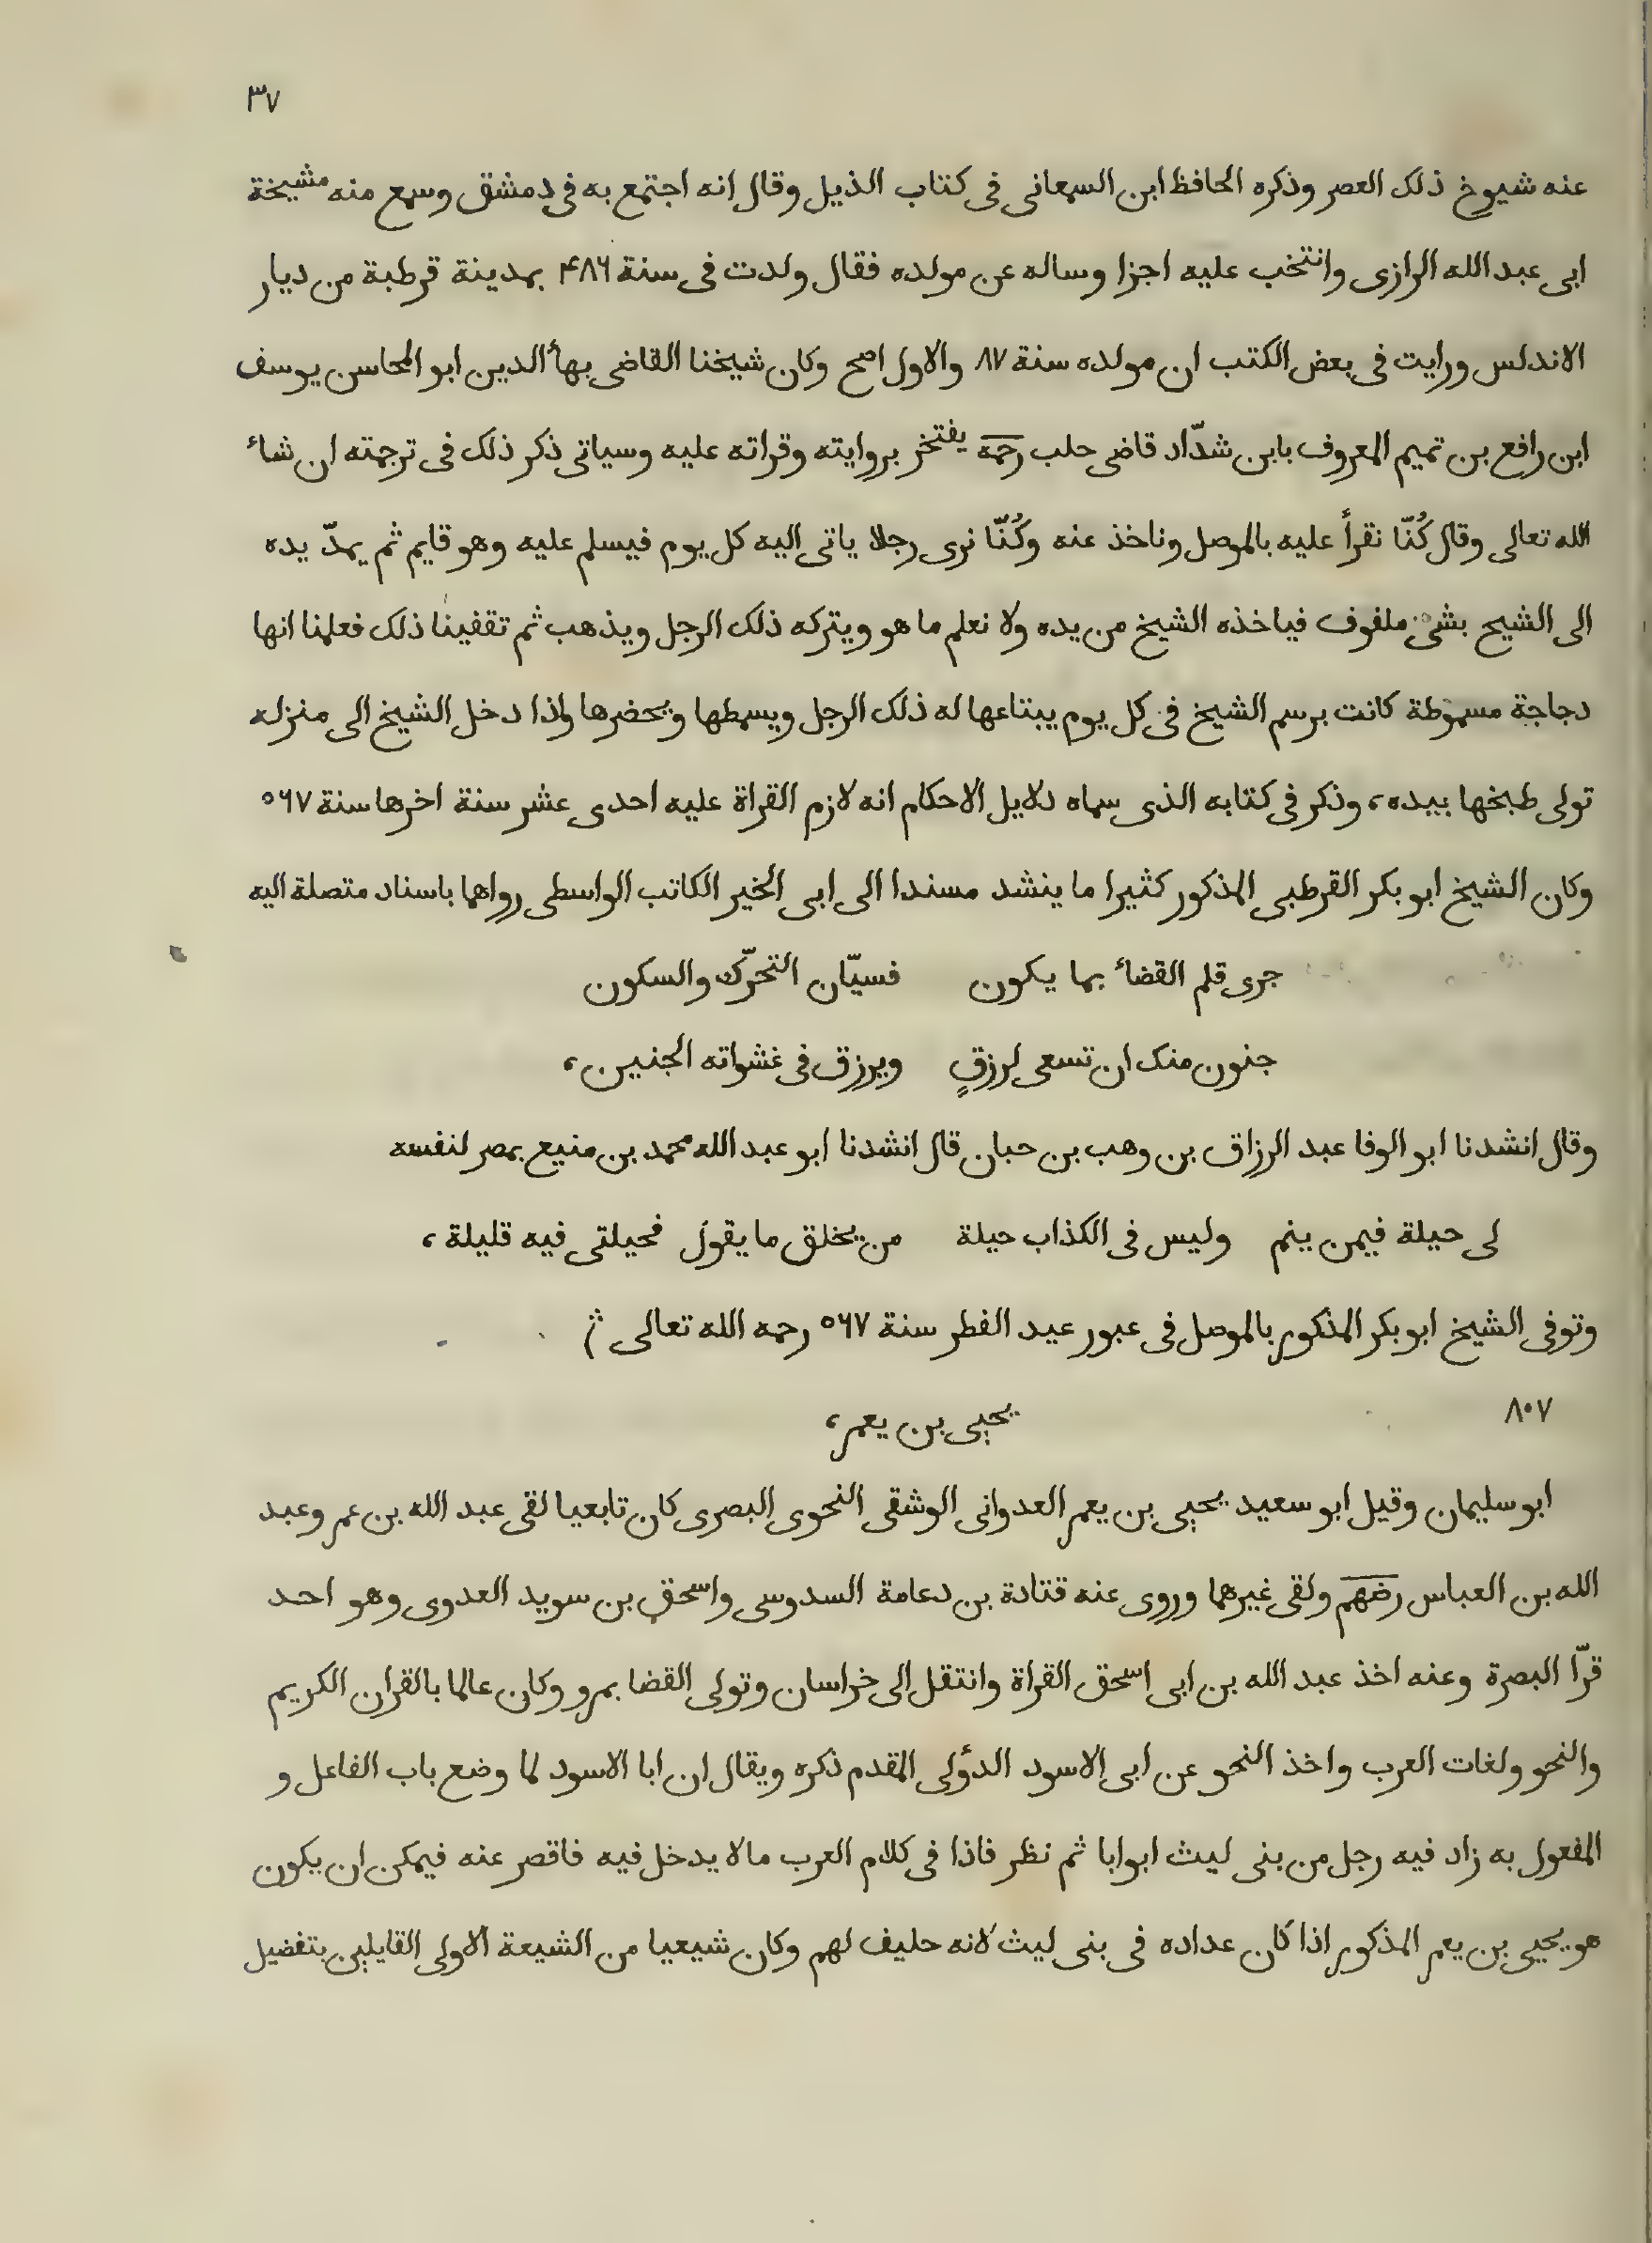 ٣٧
عنه شيوخ ذلك العصر وذكره الحافظ ابن السمعانى فى كتاب الذيل وقال انه اجتمع به فى دمشق وسمع منه مشيخة
ابى عبد الله الرازى وانتخب عليه اجزا وساله عن مولده فقال ولدت فى سنة ۴٨۶ بمدينة قرطبة من ديار
الاندلس ورايت فى بعض الكتب ان مولده سنة ٨٧ والاول اصح وكان شيخنا القاضى بهأ الدين ابو المحاسن يوسف
ابن رافع بن تميم المعروف بابن شدّاد قاضى حلب رحمه يفتخر بروايته وقراته عليه وسياتى ذكر ذلك فى ترجمته ان شاء
الله تعالى وقال كُنّا نقرأ عليه بالموصل وناخذ عنه وكُنّا نرى رجلا ياتى اليه كل يوم فيسلم عليه وهو قايم ثم يمدّ يده
الى الشيح بشىء ملفوف فياخذه الشيخ من يده ولا نعلم ما هو ويتركه ذلك الرجل ويذهب ثم تقفينا ذلك فعلمنا انها
دجاجة مسموطة كانت برسم الشيخ فى كل يوم يبتاعها له ذلك الرجل ويسمطها ويحضرها واذا دخل الشيخ الى منزله
تولى طبخها بيده، وذكر فى كتابه الذى سماه دلايل الاحكام انه لازم القراة عليه احدى عشر سنة اخرها سنة ٥۶٧
وكان الشيخ ابو بكر القرطبى المذكور كثيرا ما ينشد مسندا الى ابى الخير الكاتب الواسطى رواها باسناد متصلة اليه
جرى قلم القضاء بما يكون فسيّان التحرّك والسكون
جنون منك ان تسعى لرزقٍ ويرزق فى غشواته الجنين،
وقال انشدنا ابو الوفا عبد الرزاق بن وهب بن حبان قال انشدنا ابو عبد الله محمد بن منيع بمصر لنفسه
لى حيلة فيمن ينم وليس فى الكذاب حيلة من يخلق ما يقول فحيلتى فيه قليلة،
وتوفى الشيخ ابو بكر المذكور بالموصل فى عبور عيد الفطر سنة ٥۶٧ رحمه الله تعالى
٨٠٧
يحيى بن يعمر،
ابو سليمان وقيل ابو سعيد يحيى بن يعمر العدوانى الوشقى النحوى البصرى كان تابعيا لقى عبد الله بن عمر وعبد
الله بن العباس رضهم ولقى غيرهما وروى عنه قتادة بن دعامة السدوسى واسحق بن سويد العدوى وهو احد
قرّا البصرة وعنه اخذ عبد الله بن ابى اسحق القراة وانتقل الى خراسان وتولى القضا بمرو وكان عالما بالقران الكريم
والنحو ولغات العرب واخذ النحو عن ابى الاسود الدؤلى المقدم ذكره ويقال ان ابا الاسود لما وضع باب الفاعل و
المفعول به زاد فيه رجل من بنى ليث ابوابا ثم نظر فاذا فى كلام العرب ما لا يدخل فيه فاقصر عنه فيمكن ان يكون
هو يحيى بن يعمر المذكور اذا كان عداده فى بنى ليث لانه حليف لهم وكان شيعيا من الشيعة الاولى القايلين بتفضيل